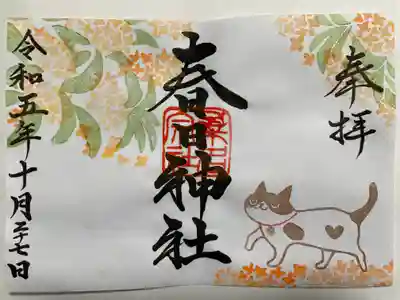 奉拝
春日神社
令和五年十月二十七日